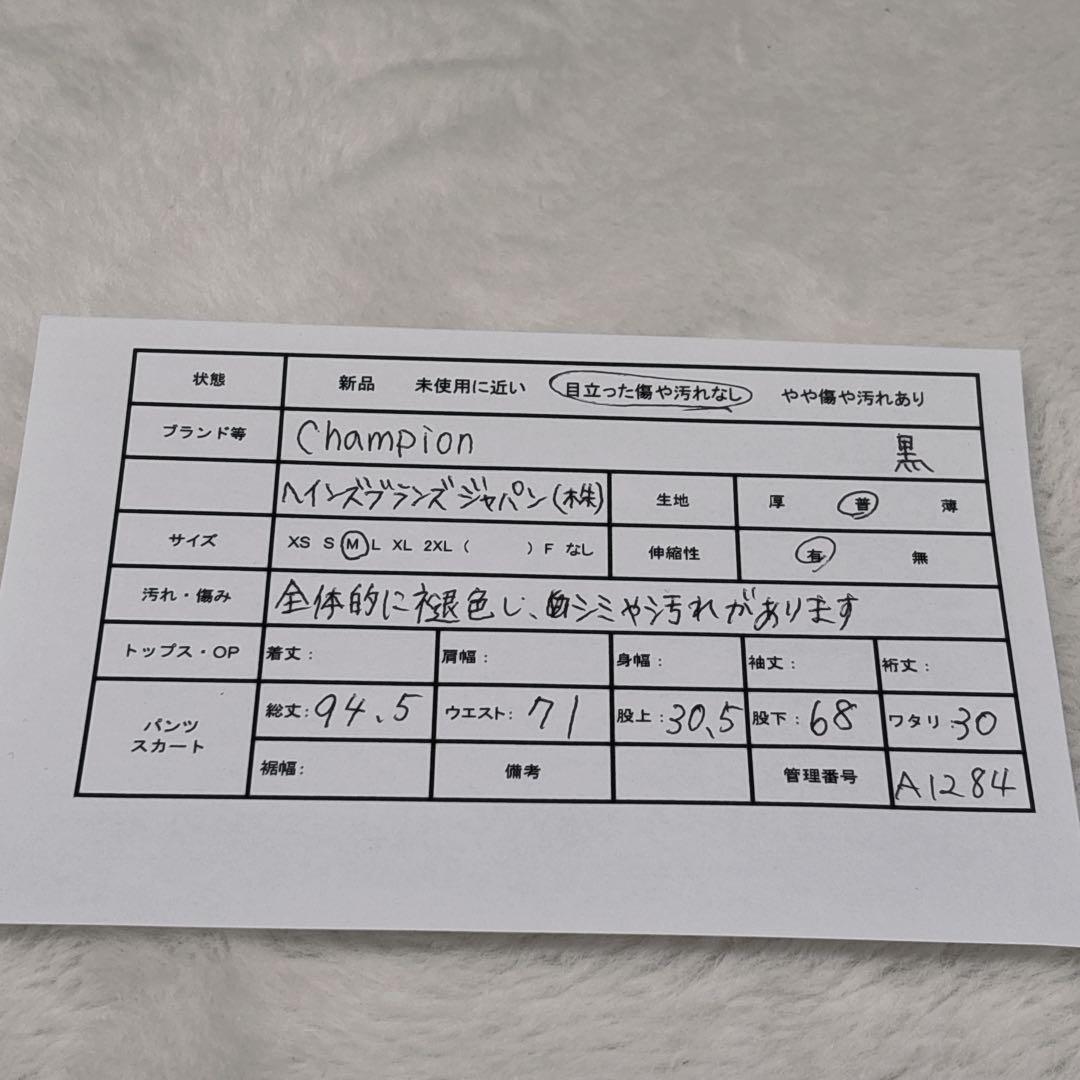 状態 新品 未使用に近い 目立った傷や汚れなし やや傷や汚れあり
ブランド等 Champion 黒
ヘインズブランズジャパン(株) 生地 厚 普 薄
サイズ XS S M L XL 2XL ( ) F なし 伸縮性 有 無
汚れ・傷み 全体的に褪色し、シミや汚れがあります
トップス・OP 着丈: 肩幅: 身幅: 袖丈: 裄丈:
パンツ スカート 総丈:94.5 ウエスト:71 股上:30.5 股下:68 ワタリ:30
裾幅: 備考 管理番号 A1284